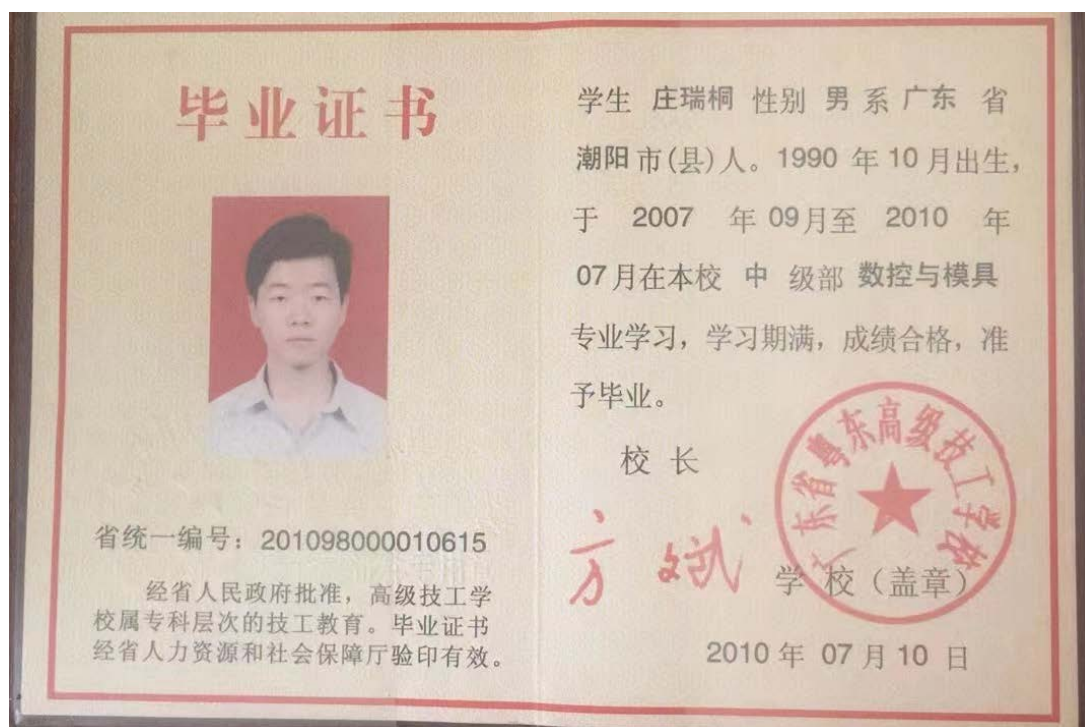 毕业证书
省统一编号：201098000010615
经省人民政府批准，高级技工学
校属专科层次的技工教育。毕业证书
经省人力资源和社会保障厅验印有效。
学生 庄瑞桐 性别 男 系 广东 省
潮阳 市(县)人。1990 年 10 月出生，
于 2007 年 09 月至 2010 年
07 月在本校 中 级部 数控与模具
专业学习，学习期满，成绩合格，准
予毕业。
校 长
方斌
广东省粤东高级技工学校
学 校（盖章）
2010 年 07 月 10 日